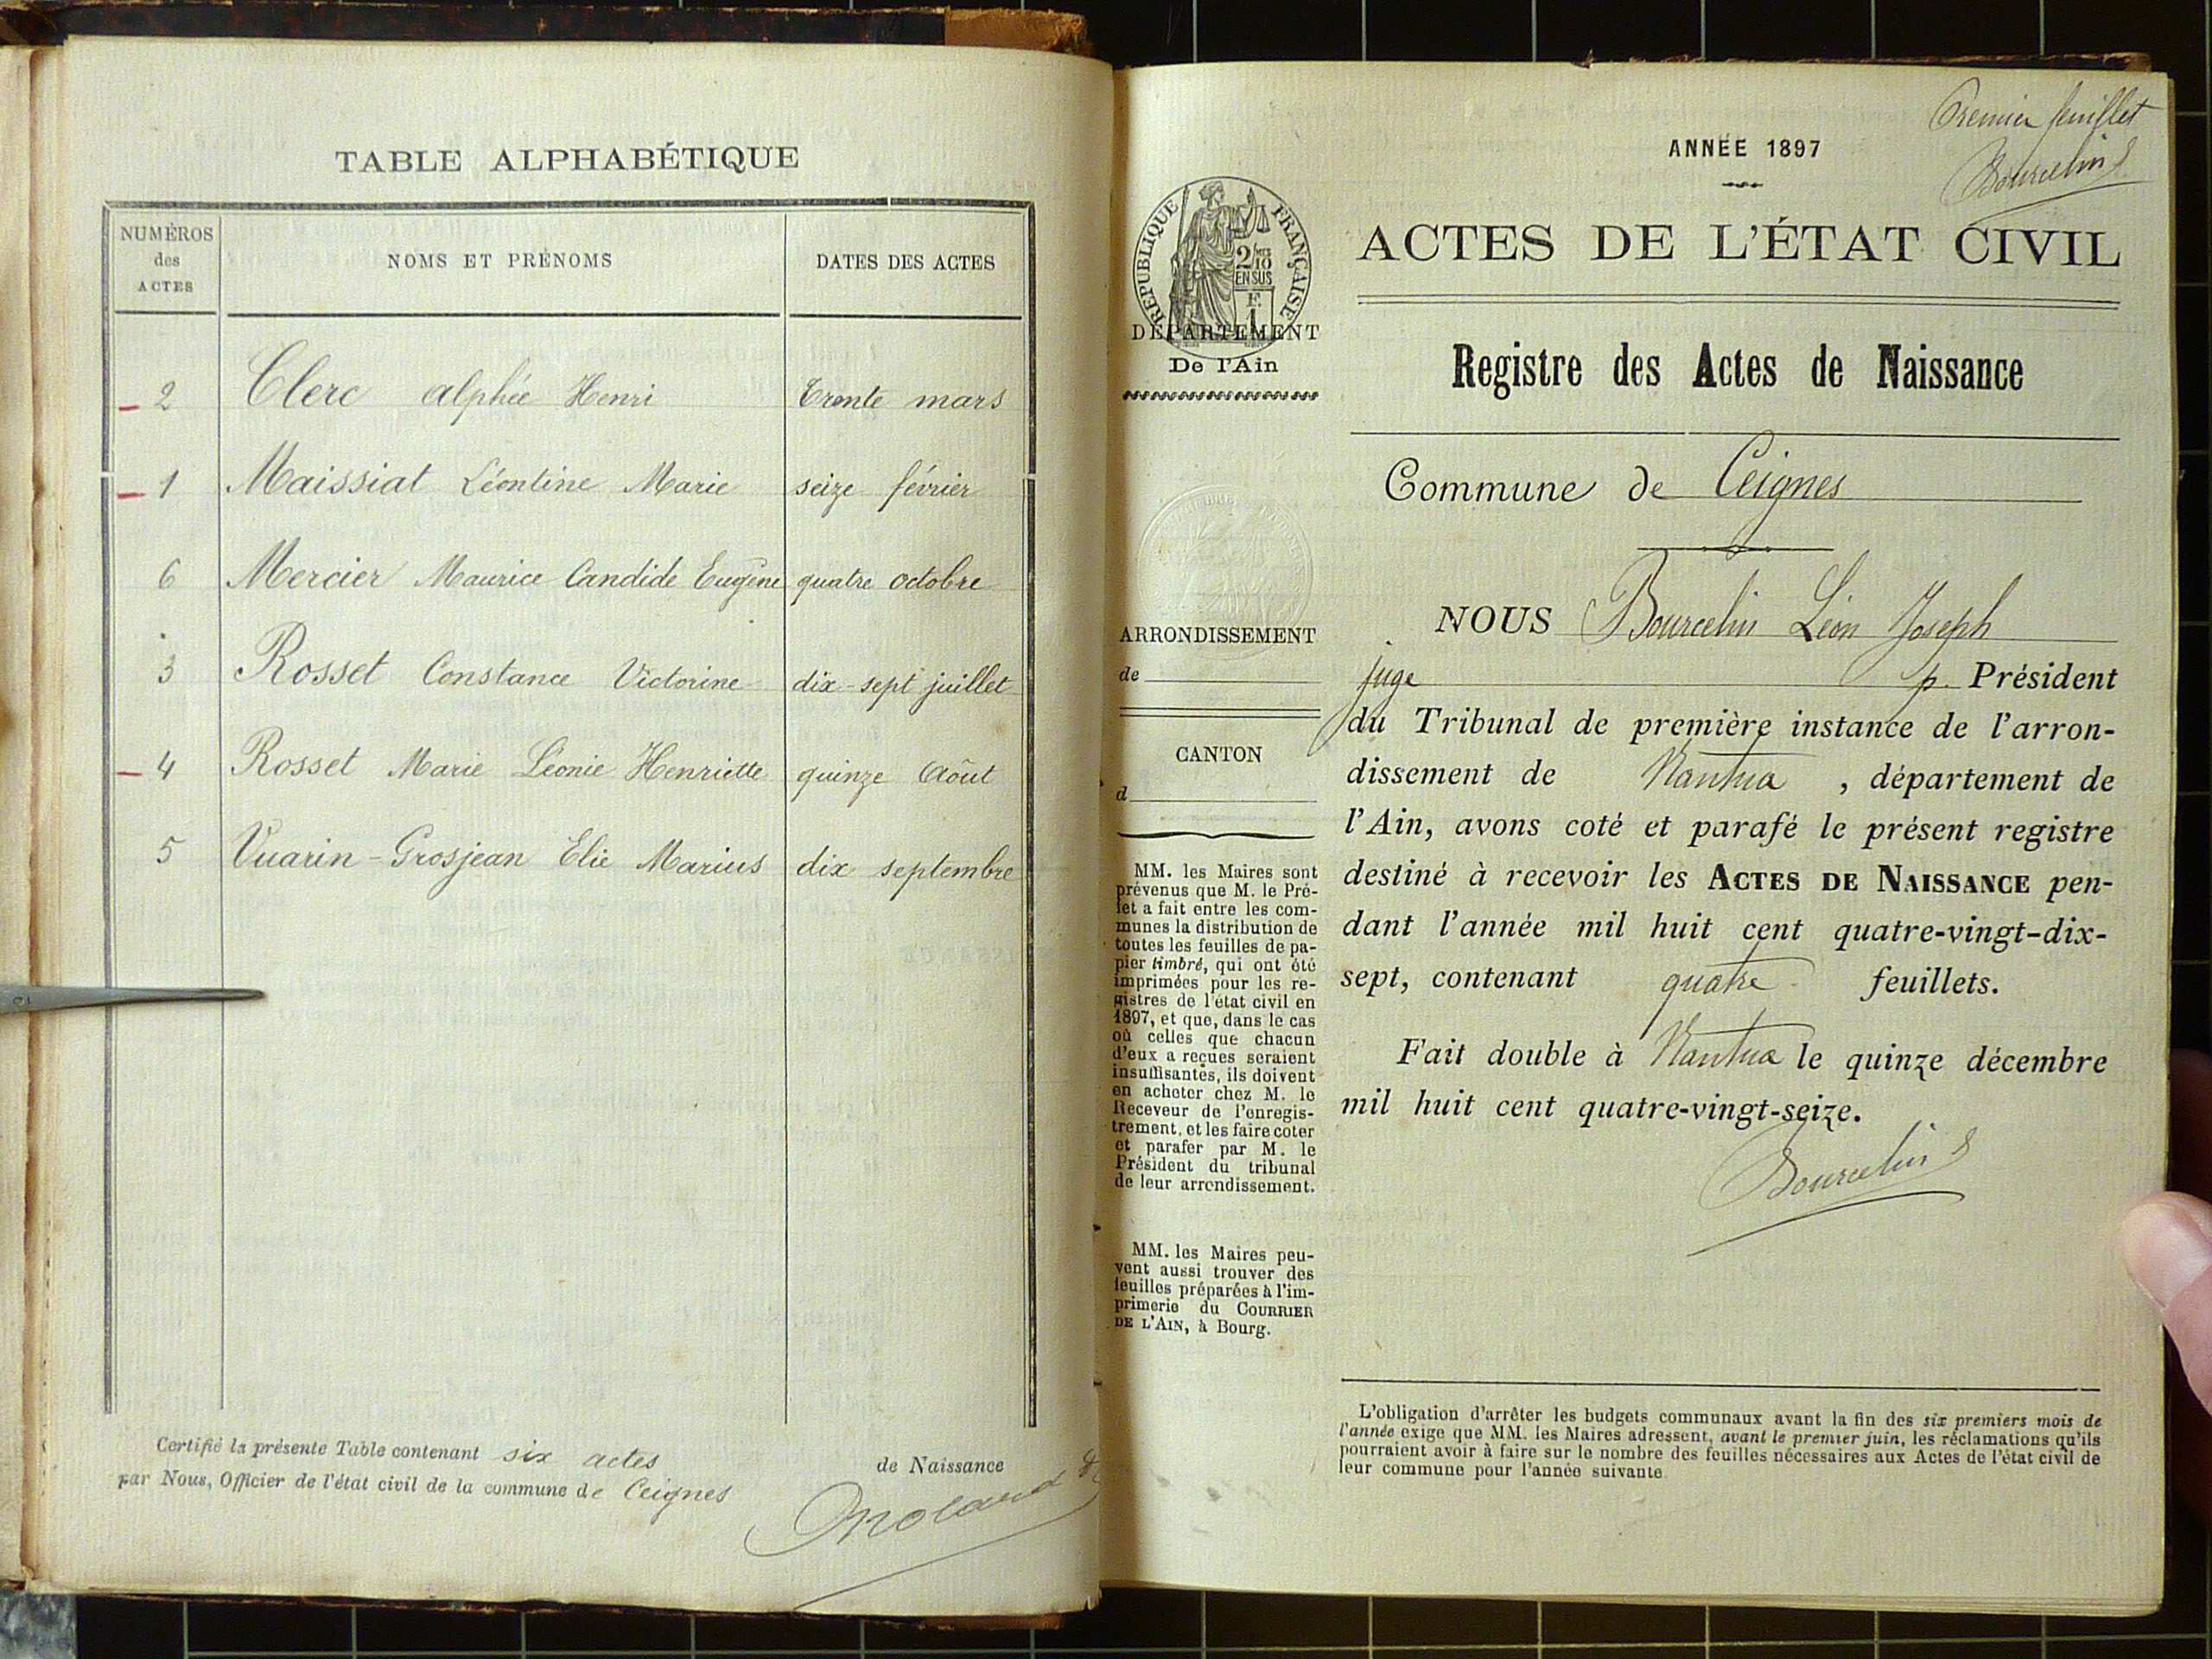 TABLE ALPHABÉTIQUE
NUMÉROS
des
ACTES
NOMS ET PRÉNOMS
DATES DES ACTES
2 Clerc alphée Henri trente mars
1 Maissiat Léontine Marie seize février
6 Mercier Maurice Candide Eugène quatre octobre
3 Rosset Constance Victorine dix-sept juillet
4 Rosset Marie Léonie Henriette quinze Août
5 Vuarin-Grosjean Elie Marius dix septembre
Certifié la présente Table contenant six actes de Naissance
par Nous, Officier de l'état civil de la commune de Ceignes
Premier feuillet
Bourcelin
ANNÉE 1897
RÉPUBLIQUE FRANÇAISE
2/10
EN SUS
F.
1
ACTES DE L'ÉTAT CIVIL
DÉPARTEMENT
De l'Ain
Registre des Actes de Naissance
Commune de Ceignes
ARRONDISSEMENT
de
CANTON
d
MM. les Maires sont
prévenus que M. le Pré-
fet a fait entre les com-
munes la distribution de
toutes les feuilles de pa-
pier timbré, qui ont été
imprimées pour les re-
gistres de l'état civil en
1897, et que, dans le cas
où celles que chacun
d'eux a reçues seraient
insuffisantes, ils doivent
en acheter chez M. le
Receveur de l'enregis-
trement, et les faire coter
et parafer par M. le
Président du tribunal
de leur arrondissement.
MM. les Maires peu-
vent aussi trouver des
feuilles préparées à l'im-
primerie du COURRIER
DE L'AIN, à Bourg.
NOUS Bourcelin Léon Joseph
juge p. Président
du Tribunal de première instance de l'arron-
dissement de Nantua, département de
l'Ain, avons coté et parafé le présent registre
destiné à recevoir les ACTES DE NAISSANCE pen-
dant l'année mil huit cent quatre-vingt-dix-
sept, contenant quatre feuillets.
Fait double à Nantua le quinze décembre
mil huit cent quatre-vingt-seize.
Bourcelin
L'obligation d'arrêter les budgets communaux avant la fin des six premiers mois de
l'année exige que MM. les Maires adressent, avant le premier juin, les réclamations qu'ils
pourraient avoir à faire sur le nombre des feuilles nécessaires aux Actes de l'état civil de
leur commune pour l'année suivante.